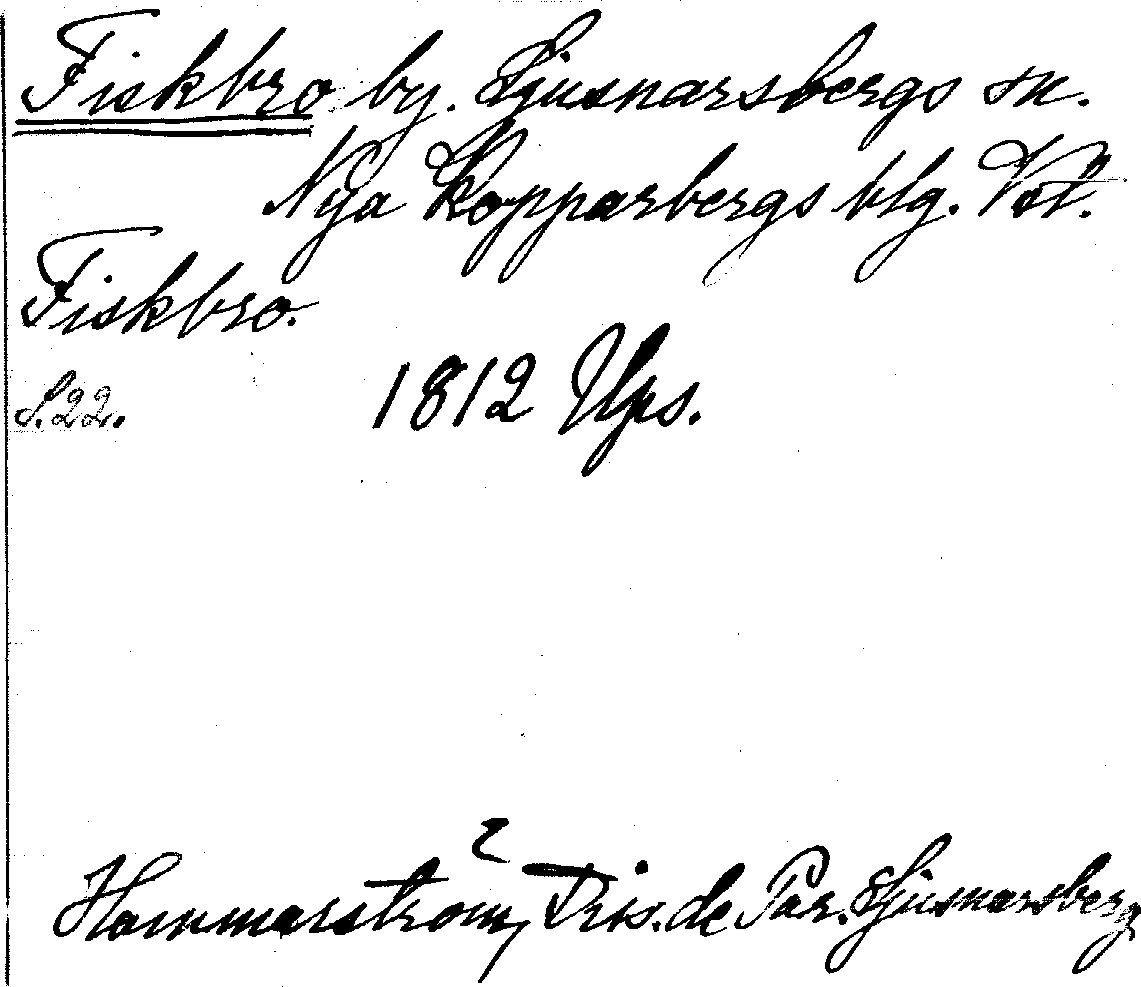 Fiskbro by. Ljusnarsbergs sn.
Nya Kopparbergs blg. Vstl.
Fiskbro.
S. 22.
1812 Ups.
Hammarström, Dis. de Par. Ljusnarsberg